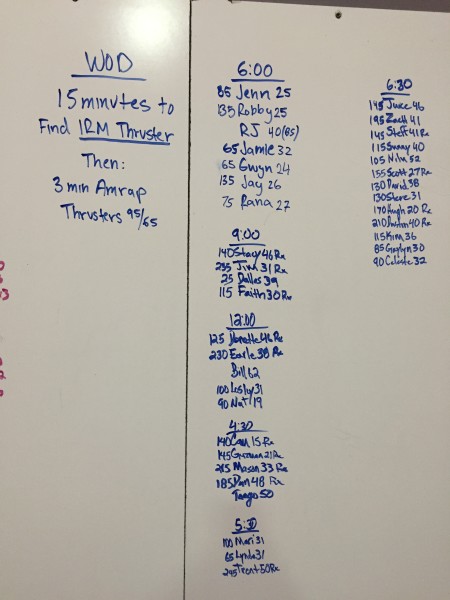 WOD
15 minutes to
Find 1RM Thruster
Then:
3 min Amrap
Thrusters 95/65
6:00
85 Jenn 25
135 Robby 25
RJ 40(65)
65 Jamie 32
65 Gwyn 24
135 Jay 26
75 Rana 27
9:00
140 Stacy 46 Rx
235 Jim 31 Rx
25 Dalles 39
115 Faith 30 Rx
12:00
125 46 Rx
230 Earle 38 Rx
Bill 62
100 Lesly 31
90 Nat 19
4:30
140 Cam 15 Rx
145 21 Rx
Mason 33 Rx
185 Dan 48 Rx
Tango 50
5:30
100 Mari 31
65 Lynda 31
Trent 50 Rx
6:30
145 46
195 Zach 41
145 Steff 41 Rx
115 Sunny 40
105 52
155 Scott 27 Rx
130 David 38
130 Steve 31
170 Hugh 20 Rx
210 40 Rx
115 Kim 36
85 30
90 Celeste 32